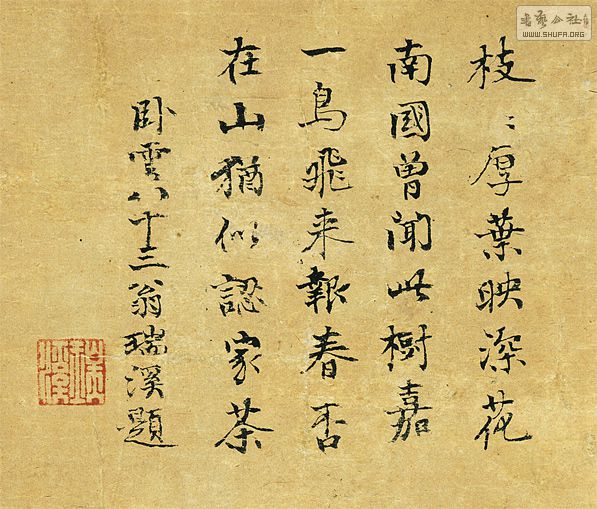 枝〻厚葉映深花
南國曾聞此樹嘉
一鳥飛来報春否
在山猶似認家茶
卧雲八十三翁瑞溪題
瑞溪
書藝公社
WWW.SHUFA.ORG